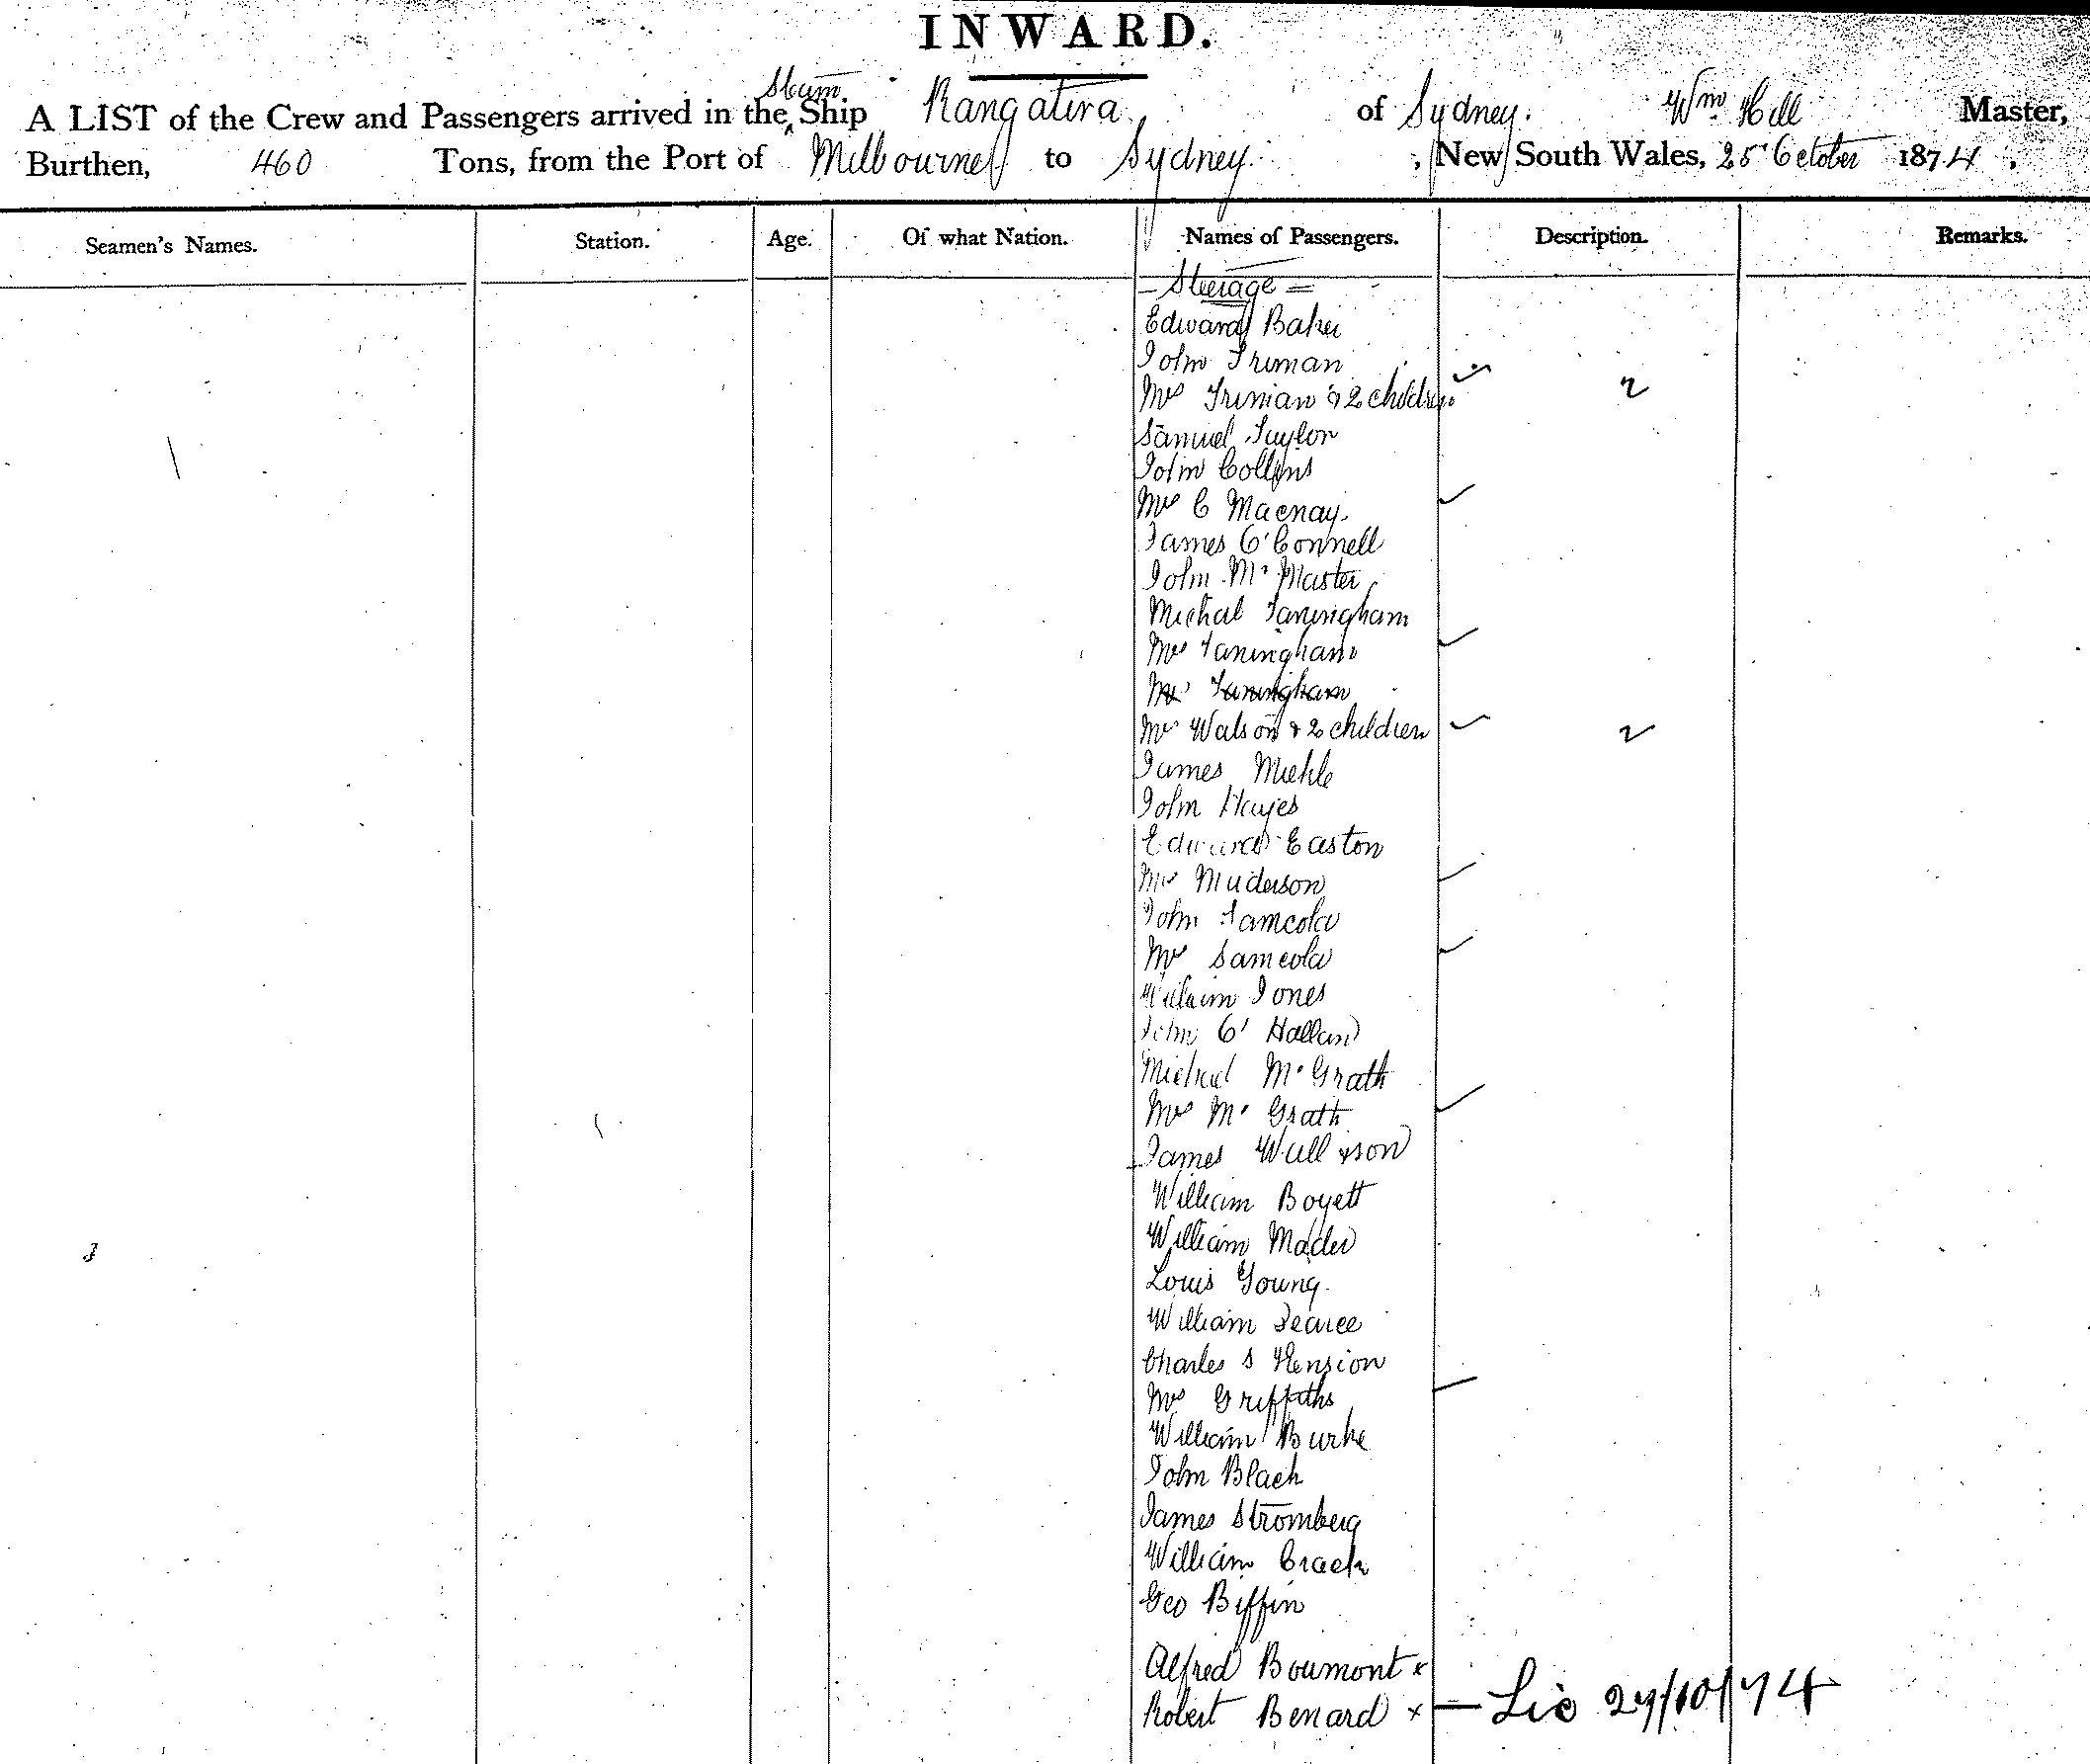 INWARD.
A LIST of the Crew and Passengers arrived in the Steam Ship Rangatira of Sydney. Wm Hill Master,
Burthen, 460 Tons, from the Port of Melbourne to Sydney , New South Wales, 25 October 1874 .
Seamen's Names. Station. Age. Of what Nation. Names of Passengers. Description. Remarks.
– Steerage =
Edward Baker
John Truman
Mrs Truman & 2 children 2
Samuel Taylor
John Collins
Mrs C Macnay
James O'Connell
John Mc Master
Michal
Mrs
Mrs Watson & 2 children 2
James Miekle
John Hayes
Edward Easton
Mrs
John
Mrs
William Jones
John O' Hallan
Michael Mc Grath
Mrs Mc Grath
James
William Boyett
William Mader
Louis Young.
William Pearce
Charles S Hension
Mrs Griffiths
William Burke
John Black
James Stromberg
William Crack
Geo Biffin
Alfred Boumont x
Robert Benard x — Lic 27/10/74